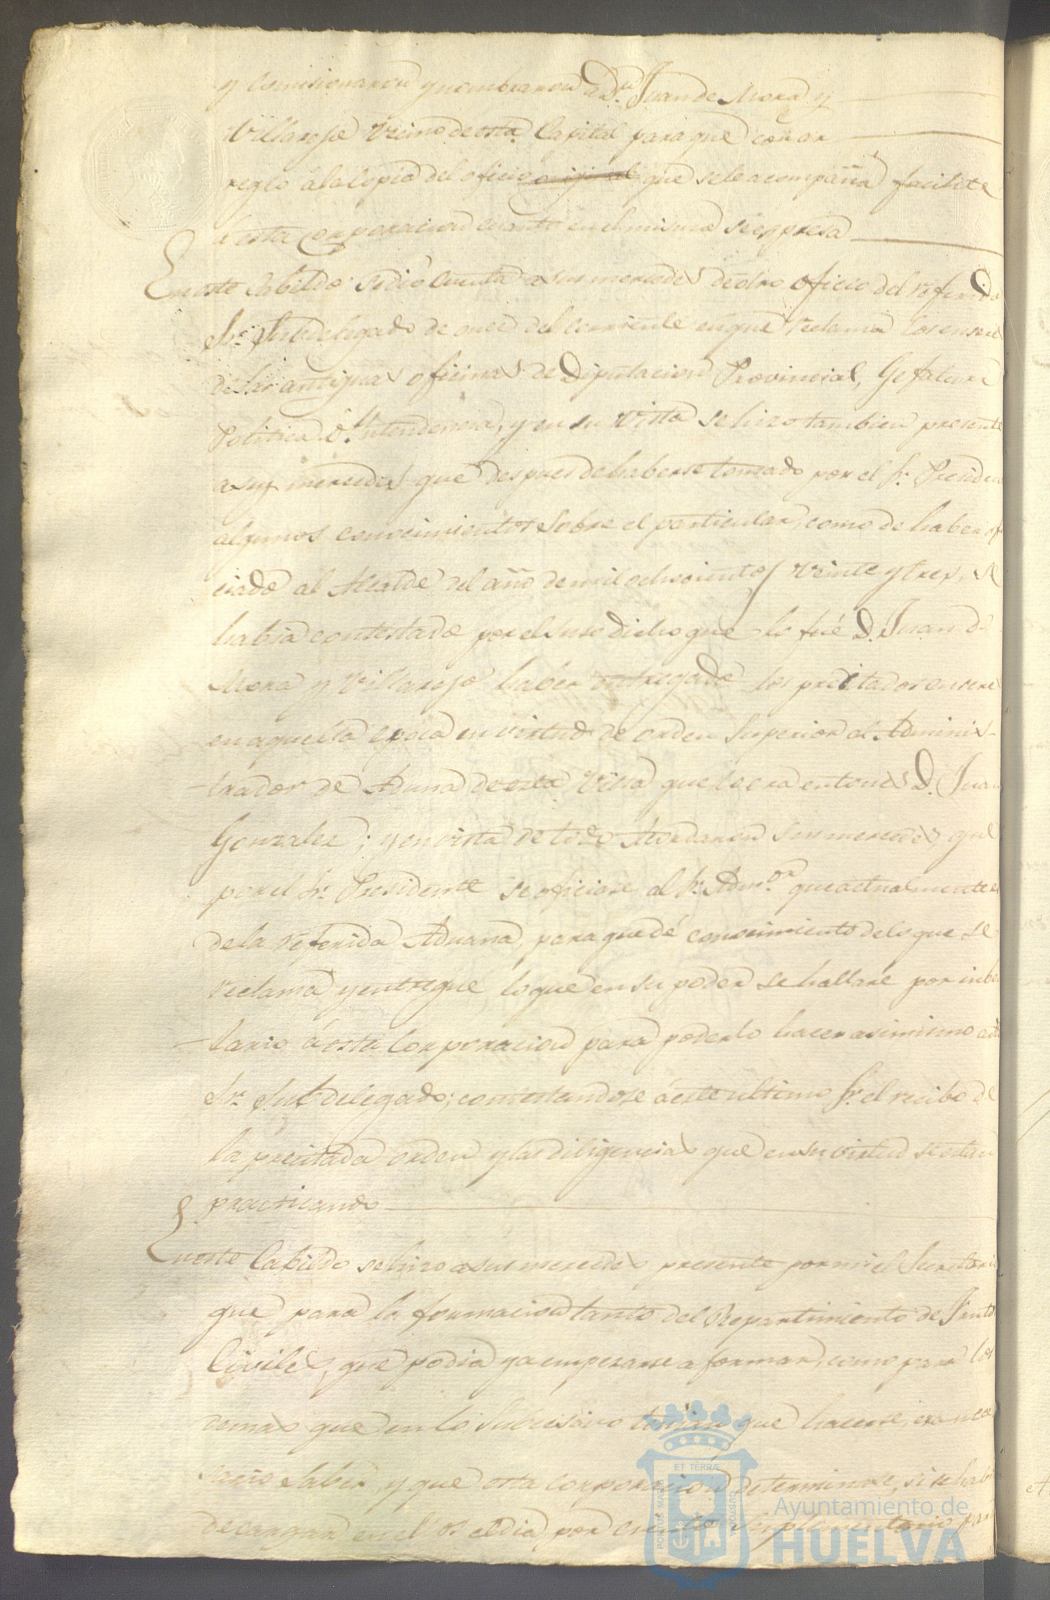 y comisionaron y nombraron a Dn. Juan de Mora y
Villarejo Vecino de esta Capital para que con ar
reglo á la Copia del oficio original que se le acompaña facilite
a esta Corporacion cuanto en el mismo se expresa
En este Cabildo se dió cuenta a sus mercedes de otro oficio del referido
Sr. Subdelegado de once del corriente en que reclama los enseres
de las antiguas oficinas de Diputacion Provincial, Gefatura
Politica é Yntendencia, y en su vista se hizo tambien presente
a sus mercedes que despues de haberse tomado por el Sr. Presiden
algunos conocimientos sobre el particular, como de haber ofi
ciado al Alcalde del año de mil ochocientos veinte y tres, se
habia contestado por el suso dicho que lo fué D. Juan de
Mora y Villarejo haber entregado los precitados enseres
en aquella epoca en virtud de orden Superior al Adminis-
trador de Aduana de esta Villa que lo era entonces D. Juan
Gonzalez; y en vista de todo Acordaron sus mercedes que
por el Sr. Presidente se oficiase al Sr. Admor. que actualmente es
de la referida Aduana, para que dé conocimiento de lo que se
reclama y entregue lo que en su poder se hallare por inben
tario á esta Corporacion para poderlo hacer asimismo a dho
Sr. Subdelegado; contestandose á este ultimo Sr. el recibo de
la precitada orden y las diligencias que en su virtud se estan
practicando
En este Cabildo se hizo a sus mercedes presente por mi el Secretario
que para la formacion tanto del Repartimiento de Frutos
Civiles, que podia ya empezarse a formar, como para los
demas que en lo subcesivo tenian que hacerse, era nece
sario saber, y que esta corporacion determinase, si se habia
de cargar en el os el dia por Cuentos Suplementario para
ET TERRÆ
PORTUS MARIS
CUSTODIA
Ayuntamiento de
HUELVA